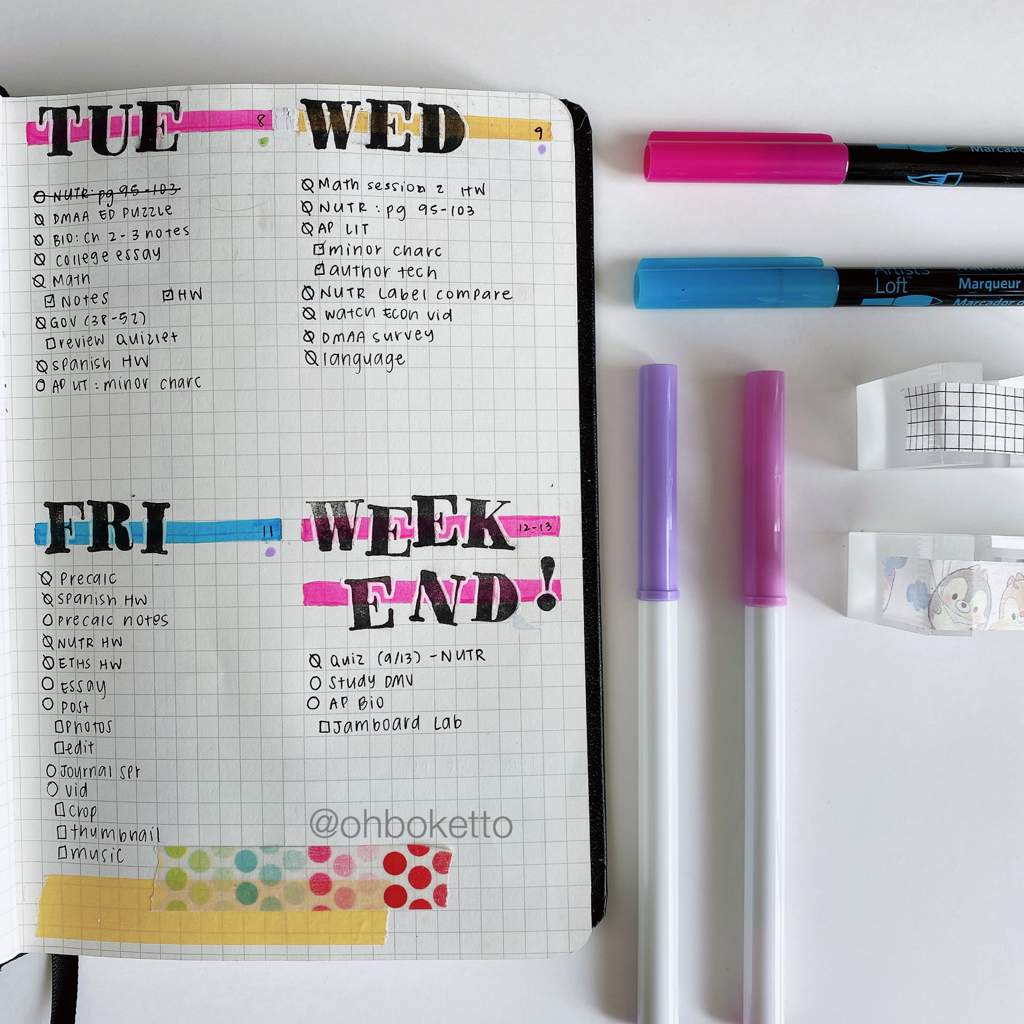 TUE 8
NUTR: pg 95-103
DMAA ED PUZZLE
BIO: Ch 2-3 notes
college essay
Math
Notes HW
GOV (38-52)
review Quizlet
Spanish HW
AP LIT: minor charc
WED 9
Math session 2 HW
NUTR: pg 95-103
AP LIT
minor charc
author tech
NUTR Label compare
watch Econ vid
DMAA survey
language
FRI 11
Precalc
Spanish HW
precalc notes
NUTR HW
ETHS HW
Essay
post
photos
edit
Journal spr
vid
crop
thumbnail
music
WEEK 12-13
END!
Quiz (9/13) - NUTR
Study DMV
AP BIO
Jamboard Lab
@ohboketto
Marcado
Artists
Loft
Marqueur
Marcador d